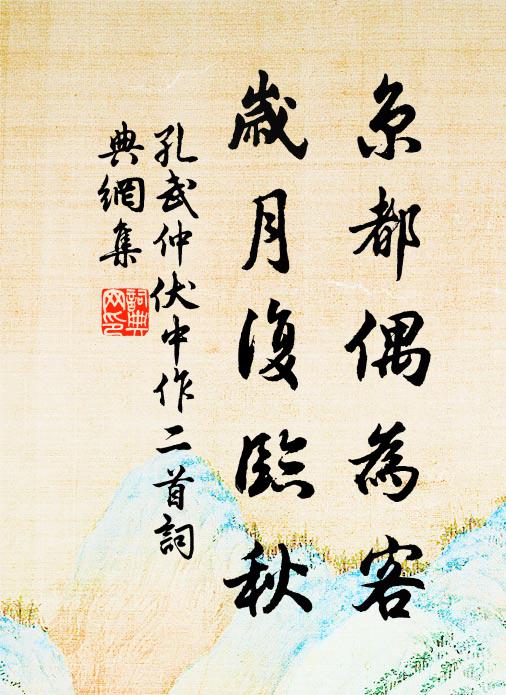 京都偶為客
歲月復臨秋
孔武仲伏中作二首詞
典網集
詞典
网印